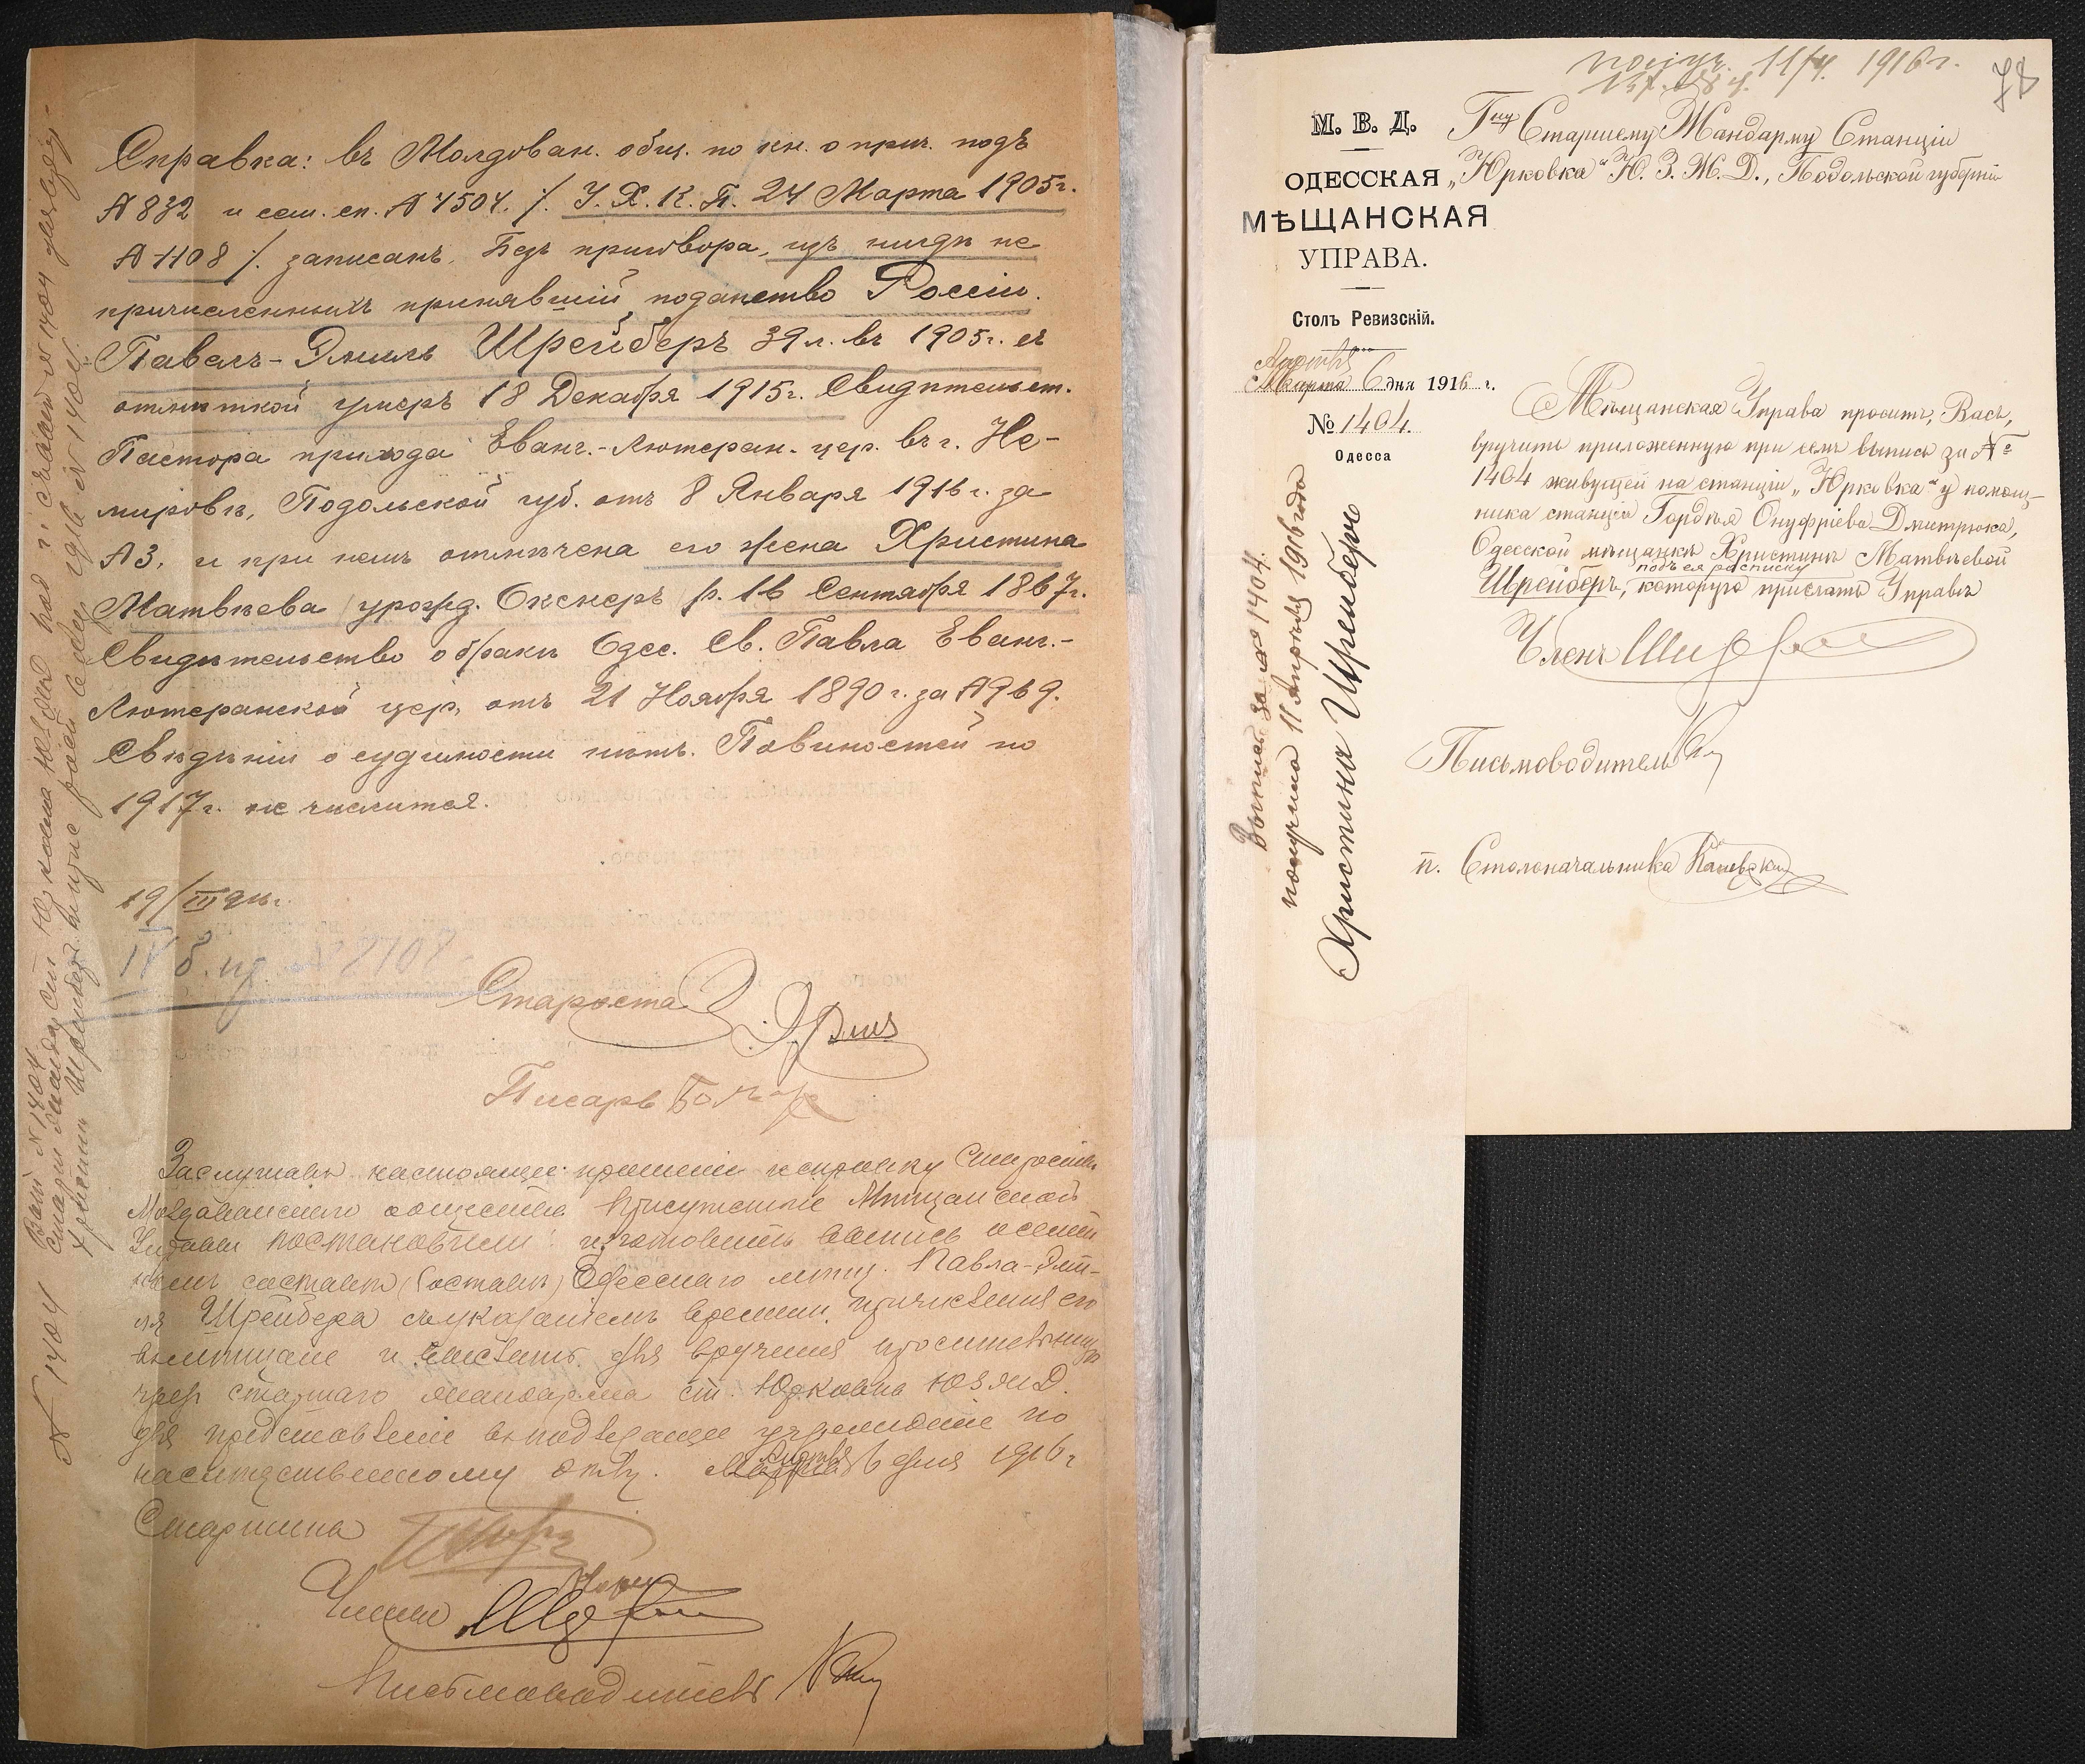 Справка: въ Молдован. общ. по кн. о прич. подъ
№ 832 и сем. сп. № 4504. /. У. Х. К. П. 24 Марта 1905 г.
№ 1108 /. записанъ, безъ приговора, изъ нигдѣ не
причисленныхъ принявшій поданство Россіи
Павелъ-Эмиль Шрейберъ 39 л. въ 1905 г. съ
отмѣткой умеръ 18 Декабря 1915 г. Свидѣтельст.
Пастора прихода Еванг.-Лютеран. цер. въ г. Не-
мировѣ, Подольской губ. отъ 8 Января 1916 г. за
№ 3, и при немъ отмѣчена его жена Христина
Матвѣева /урожд. Окснеръ/ р. 16 Сентября 1867 г.
Свидѣтельство о бракѣ Одес. Св. Павла Еванг.-
Лютеранской цер. отъ 21 Ноября 1890 г. за № 969.
Свѣдѣній о судимости нѣтъ. Повиностей по
1917 г. не числится.
19/III 916 г.
Староста
Писарь
Заслушавъ настоящее прошеніе и справку Старосты
Молдаванскаго общества Присутствіе Мѣщанской
Управы постановили: изготовить выпись о семей
номъ составѣ (составѣ) Одесскаго мѣщ. Павла-Эми-
ля Шрейбера съ указаніемъ времени причисленія его
въ мѣщане и выслать для врученія просительницѣ
чрез старшаго жандарма ст. Юрковка ЮЗЖД.
для представленія въ подлежащее учрежденіе по
наслѣдственному дѣлу. Апрѣля 6 дня 1916 г
Старшина
Члены
Письмоводитель
№ 1404
М. В. Д.
ОДЕССКАЯ
МѢЩАНСКАЯ
УПРАВА.
Столъ Ревизскій.
Апрѣля
Марта 6 дня 1916 г.
№ 1404.
Одесса
11/IV. 1916 г.
78
Гну Старшему Жандарму Станціи
„Юрковка" Ю. З. Ж. Д., Подольской губерніи
Мѣщанская Управа проситъ, Васъ,
вручить приложенную при семъ выпись за №
1404 живущей на станціи „Юрковка" у помощ-
ника станціи Гордѣя Онуфріева Дмитрюка,
Одесской мѣщанкѣ Христинѣ Матвѣевой
подъ ея росписку
Шрейберъ, которую прислать Управѣ
Членъ
Письмоводитель
п. Столоначальника
Выпись за № 1404.
получила 11 Апрѣля 1916 года
Христина Шрейберъ